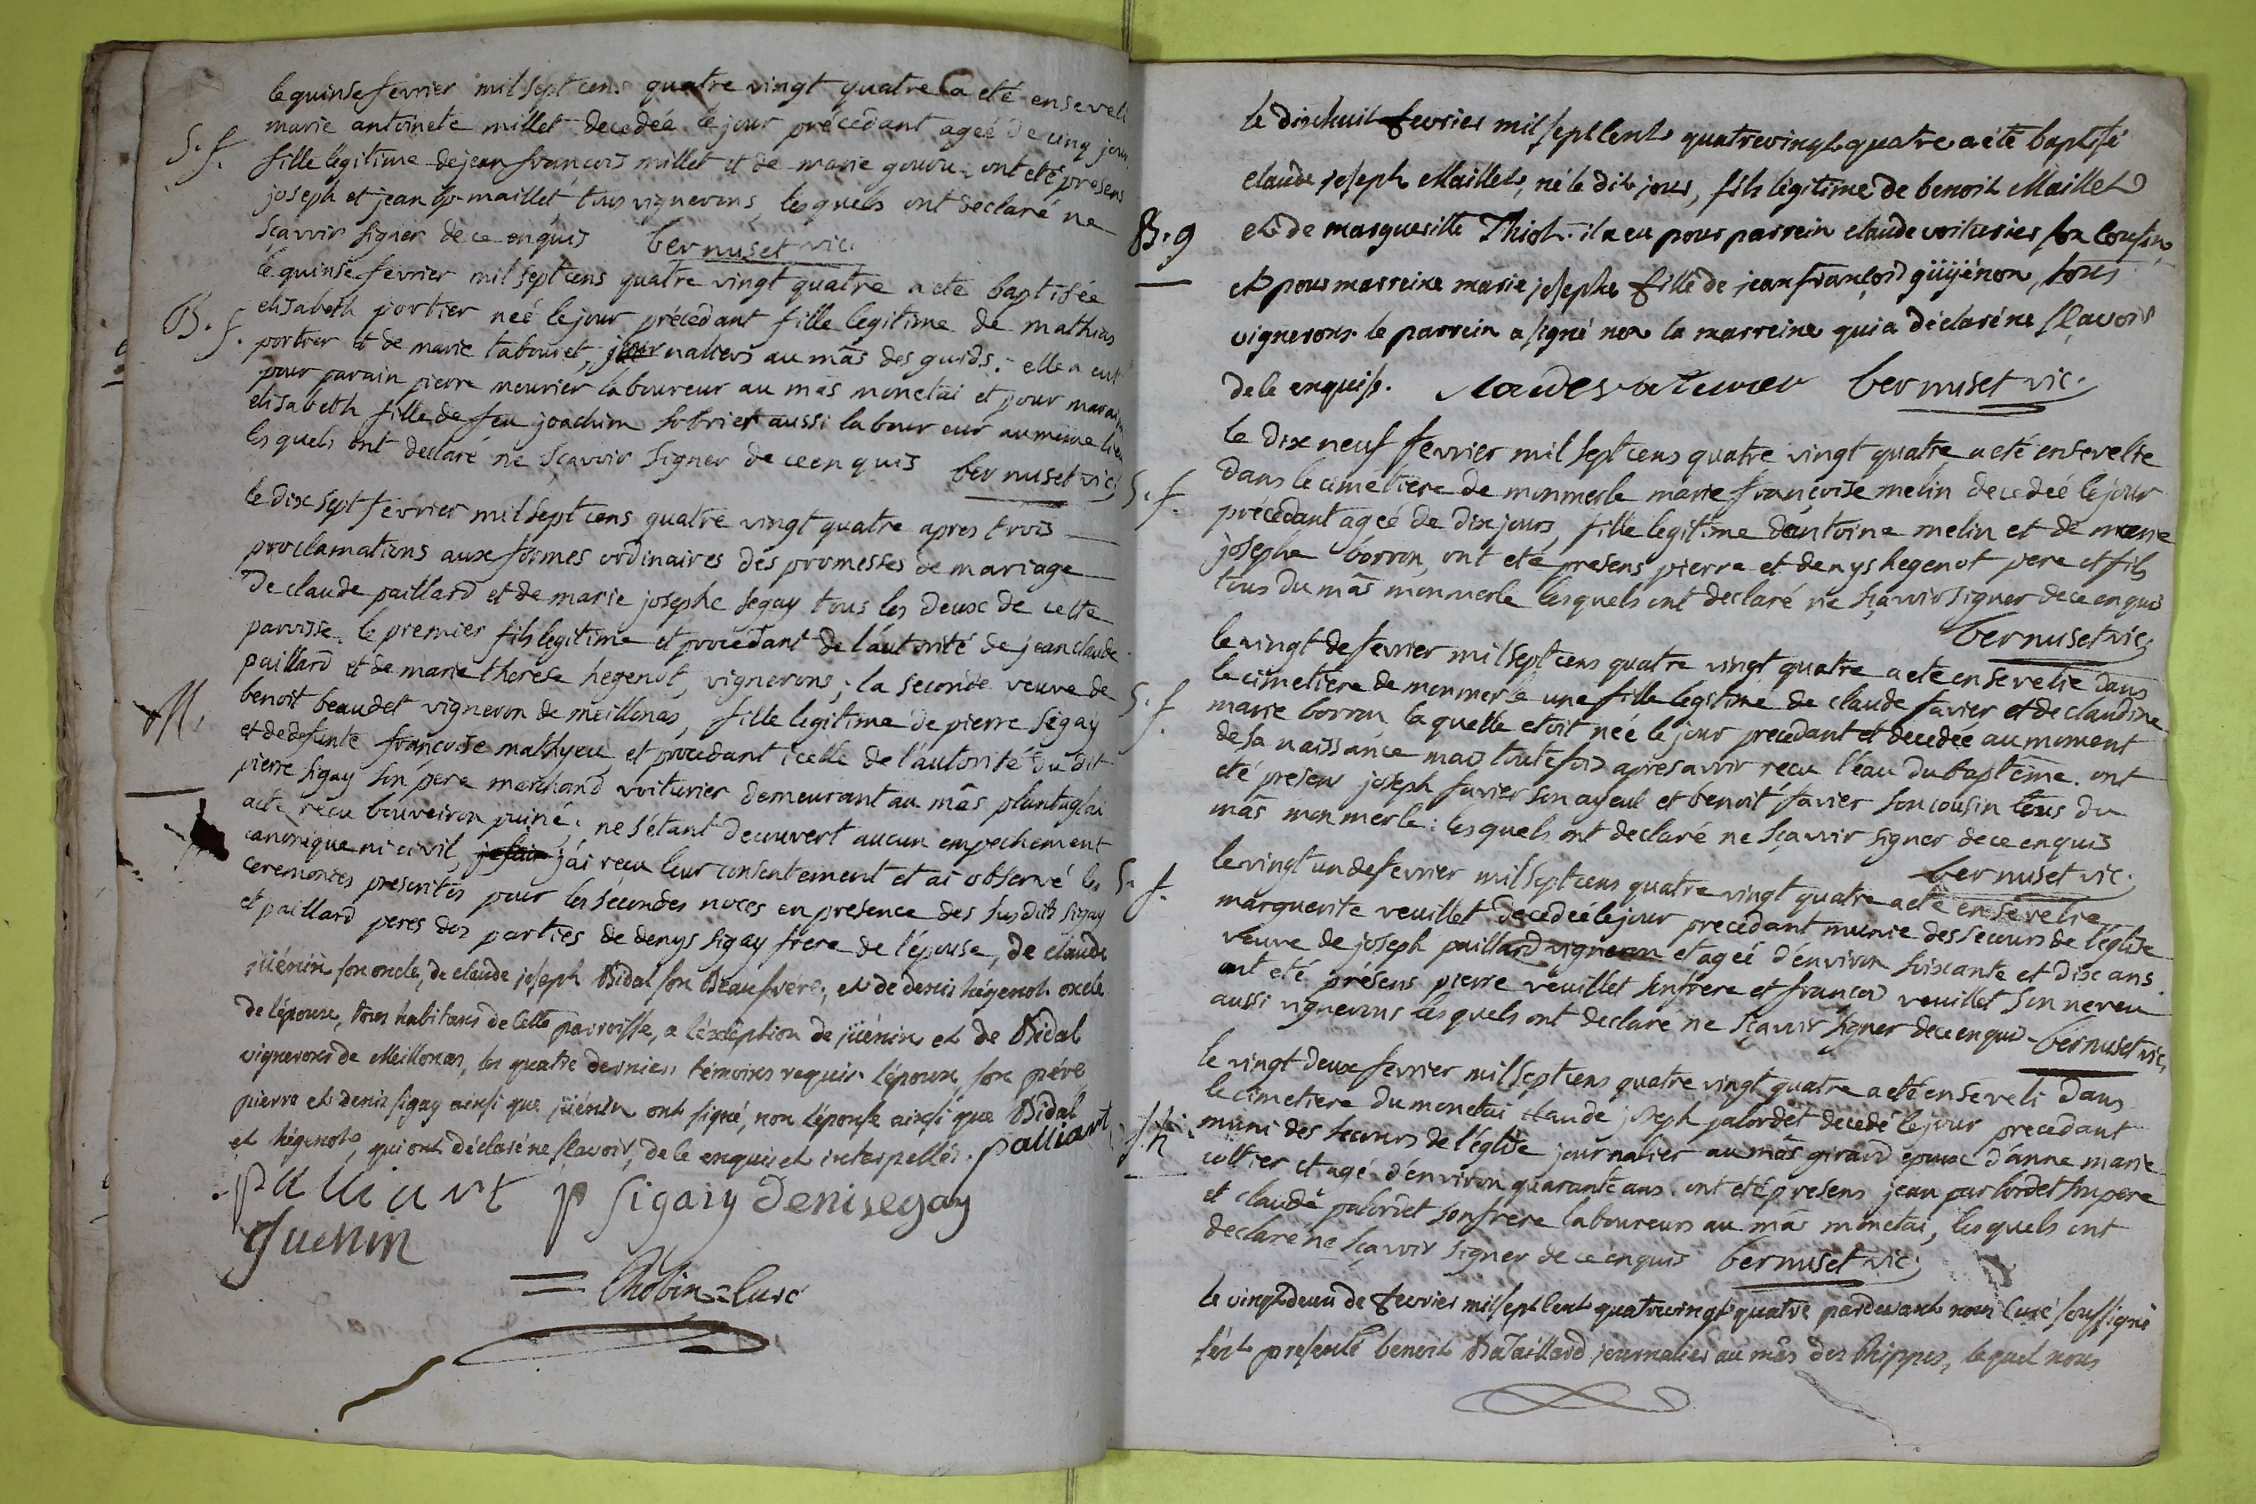 le quinse fevrier mil sept cens quatre vingt quatre a eté enseveli
S. f.
marie antoinete millet decedeé le jour précédant ageé de cinq jours
fille legitime de jean françois millet et de marie gouvu. ont eté presens
joseph et jean bp. maillet tous vignerons, les quels ont declaré ne
sçavoir signer de ce enquis bernuset vic.
le quinse fevrier mil sept cens quatre vingt quatre a eté baptisée
B. f.
elisabeth portier neé le jour précédant fille legitime de mathias
portier et de marie tabouret, journaliers au mâs des guids: elle a eut
pour parain pierre meurier laboureur au mas monetai et pour maraine
elisabeth fille de feu joachim sobriet aussi laboureur au même lieu
les quels ont declaré ne sçavoir signer de ce enquis bernuset vic.
le dix sept fevrier mil sept cens quatre vingt quatre apres trois
proclamations aux formes ordinaires des promesses de mariage
de claude paillard et de marie josephe segay tous les deux de cette
paroisse. le premier fils legitime et procedant de l'autorité de jean claude
paillard et de marie therese hegenot, vignerons; la seconde veuve de
M.
benoit beaudet vigneron de meillonas, fille legitime de pierre sigay
et de defunte françoise mathyeu et procedant icelle de l'autorité du dit
pierre sigay son pere marchand voiturier demeurant au mâs plantaglai
acte recu bouveiron puiné; ne s'étant decouvert aucun empechement
canonique ni civil, j'ai recu leur consentement et ai observé les
ceremonies prescrites pour les secondes noces en presence des susdits sigay
et paillard peres des parties de denys sigay frere de l'épouse, de claude
jüénin son oncle, de claude joseph Bidal son Beaufrére, et de denis hégenot oncle
de lépoux, tous habitans de cette parroisse, a léxéption de jüénin et de Bidal
vignerons de Meillonas, les quatre derniers témoins requis. lépoux, son pére
pierre et denis sigay ainsi que jüénin ont signé, non lépouse ainsi que Bidal
et hégenot, qui ont déclaré ne sçavoir, de le enquis et interpellés. palliart
palliart p sigaiy Denisegay
guenin
Chobin = Curé
le dixhuit fevrier mil sept cents quatrevingt quatre a été baptisé
claude joseph Maillet, né le dit jour, fils légitime de benoit Maillet
B. g
et de margueritte Thiot. il a eu pour parrein claude voiturier son cousin,
et pour marreine marie josephe fille de jean françois güÿénon, tous
vignerons. le parrein a signé non la marreine qui a déclaré ne sçavoir
de le enquise. claudevaturier bernuset vic.
le dix neuf fevrier mil sept cens quatre vingt quatre a eté ensevelie
S. f.
dans le cimetiere de monmerle marie françoise melin decedeé le jour
précedant ageé de dix jours, fille legitime d'antoine melin et de marie
josephe borron, ont eté presens pierre et denys hegenot pere et fils
tous du mâs monmerle lesquels ont declaré ne sçavoir signer de ce enquis
bernuset vic.
le vingt de fevrier mil sept cens quatre vingt quatre a eté ensevelie dans
S. f.
le cimetiere de monmerle une fille legitime de claude favier et de claudine
marie borron laquelle etoit née le jour precedant et decedée au moment
de sa naissance mais toutefois apres avoir recu l'eau du baptême. ont
eté presens joseph favier son ayeul et benoit favier son cousin tous du
mâs monmerle: lesquels ont declaré ne sçavoir signer de ce enquis
bernuset vic.
le vingt un de fevrier mil sept cens quatre vingt quatre a eté ensevelie
S. f.
marguerite veuillet decedeé le jour precedant munie des secours de l'église
veuve de joseph paillard vigneron et ageé d'environ soixante et dix ans.
ont eté présens pierre veuillet son frere et françois veuillet son neveu
aussi vignerons lesquels ont declaré ne sçavoir signer de ce enquis bernuset vic.
le vingt deux fevrier mil sept cens quatre vingt quatre a eté enseveli dans
le cimetiere du monetai claude joseph palordet decedé le jour precedant
S. h.
muni des secours de l'église journalier au mâs girard epoux d'anne marie
coltier et agé d'environ quarante ans. ont eté presens jean parlordet son pere
et claude palordet son frere laboureurs au mâs monetai, lesquels ont
declaré ne sçavoir signer de ce enquis bernuset vic.
le vingtdeux de fevrier mil sept cent quatrevingt quatre pardevant nous Curé soussigné
s'est presenté benoit Bataillard journalier au mâs des Chippes, lequel nous